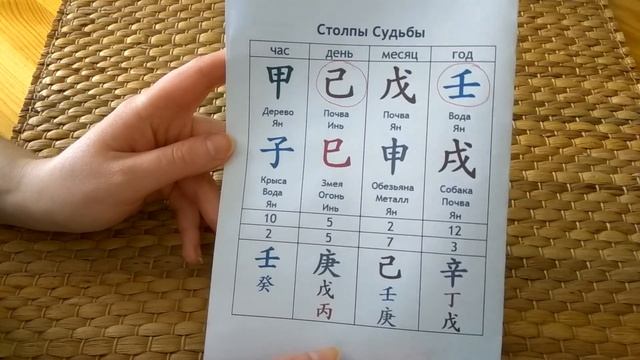 Столпы Судьбы
час день месяц год
甲 己 戊 壬
Дерево Почва Почва Вода
Ян Инь Ян Ян
子 巳 申 戌
Крыса Змея Обезьяна Собака
Вода Огонь Металл Почва
Ян Инь Ян Ян
10 5 2 12
2 5 7 3
壬 庚 己 辛
癸 戊 壬 丁
丙 庚 戊